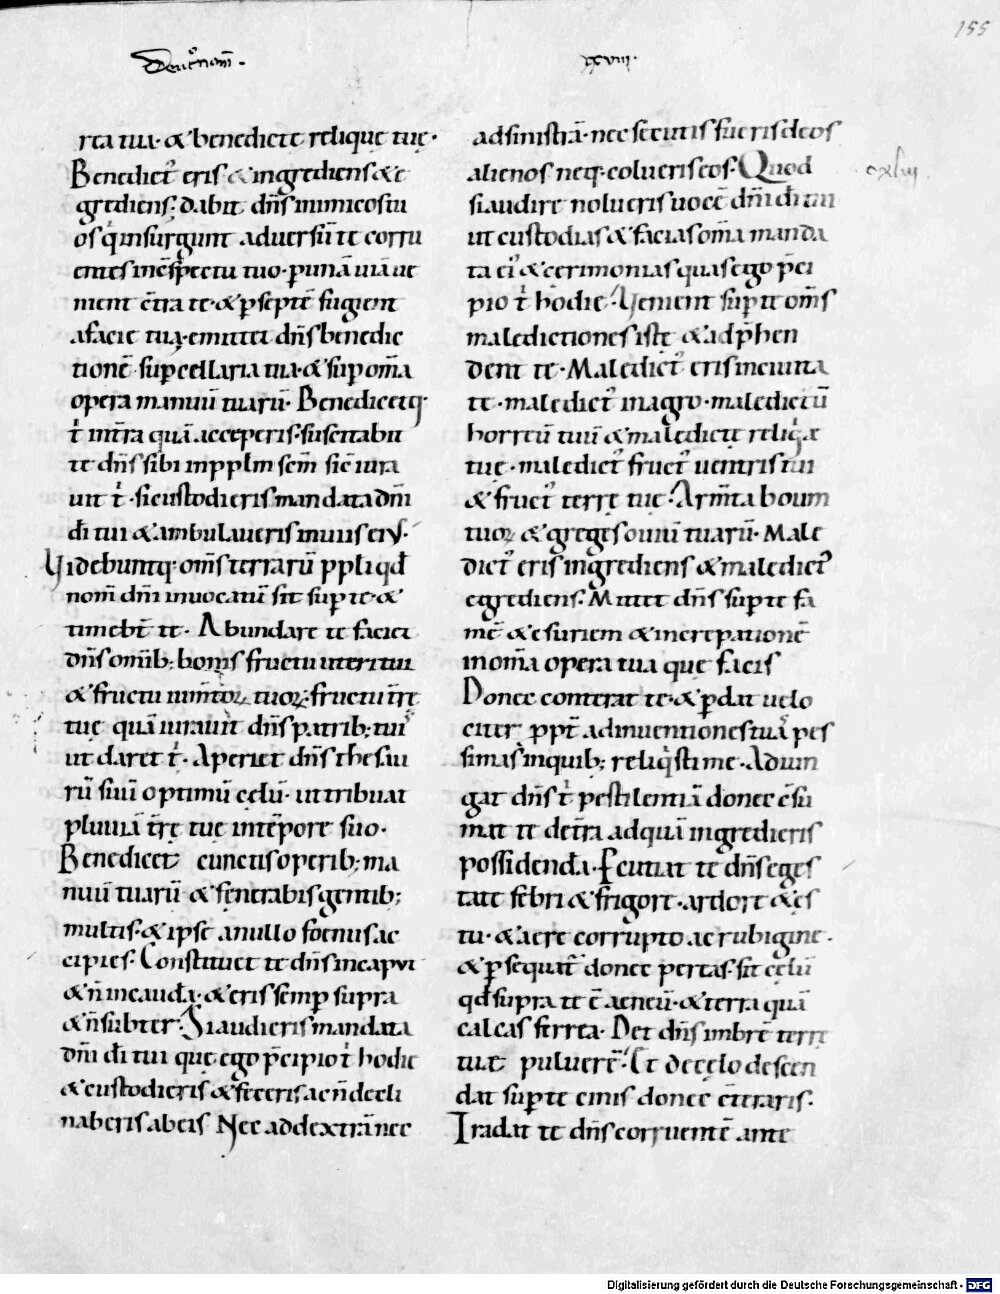 155
Deut̾onom̄.
xcviii.
rea tua. & benedicte reliquię tuę.
Benedict᷒ eris & ingrediens & e
grediens. dabit dn̄s inimicos tu
os q̇ insurgunt aduersū te corru
entes in c̄spectu tuo. p unā uiā ue
nient c̄tra te. & p septē fugient
a facie tua. emittet dn̄s benedic
tionē sup cellaria tua. & sup om̄a
opera manuū tuarū. Benedicetq;
t̍ in tr̄a quā acceperis. suscitabit
te dn̄s sibi in pplm sc̄m sic̄ iura
uit t̍. si custodieris mandata dn̄i
dī tui & ambulaueris in uiis ei᷒.
Uidebuntq; om̄s terrarū ppli qđ
nom̄ dn̄i inuocatū sit sup te. &
timebt̄ te. Abundare te faciet
dn̄s omīb; bonis fructu uteri tui
& fructu iumtoꝝ tuoꝝ. fructu tr̄ę
tuę quā iurauit dn̄s patrib; tuis
ut daret t̍. Aperiet dn̄s thesau
rū suū optimū cęlū. ut tribuat
pluuiā tr̄ę tuę in tēpore suo.
Benedicet cunctis operib; ma
nuū tuarū & fenerabis gentib;
multis. & ipse a nullo foenus ac
cipies. Constituet te dn̄s in caput
& n̄ in caudā. & eris semp supra
& n̄ subter. Si audieris mandata
dn̄i dī tui quę ego p̄cipio t̍ hodie
& custodieris & feceris ac n̄ decli
naberis ab eis Nec ad dextrā nec
ad sinistrā. nec secutus fueris deos
alienos neq; colueris eos. Quod
cxlvii.
si audire nolueris uocē dn̄i dī tui
ut custodias & facias om̄a manda
ta ei᷒ & cerimonias quas ego p̄ci
pio t̍ hodie. Uenient sup te om̄s
maledictiones istę & adp̄hen
dent te. Maledict᷒ eris in ciuita
te. maledict᷒ in agro. maledictū
horreū tuū & maledictę reliq̇æ
tuę. maledict᷒ fruct᷒ uentris tui
& fruct᷒ terrę tuę. Arm̄ta boum
tuoꝝ & greges ouiū tuarū. Male
dict᷒ eris ingrediens & maledict᷒
egrediens. Mittet dn̄s sup te fa
mē & esuriem & increpationē
in om̄a opera tua quę facis
Donec conterat te. & pdat uelo
citer ppt̄ adinuentiones tuas pes
simas in quib; reliq̇sti me. Adiun
gat dn̄s t̍ pestilentiā donec c̄su
mat te de tr̄a ad quā ingredieris
possidendā. Pcutiat te dn̄s eges
tate febri & frigore. ardore & es
tu. & aere corrupto ac rubigine.
& psequat̄ donec pereas. sit cęlū
qđ supra te ē aeneū. & terra quā
calcas ferrea. Det dn̄s imbrē terrę
tuæ puluerē. Et de cęlo descen
dat sup te cinis donec c̄traris.
Tradat te dn̄s corruentē ante
Digitalisierung gefördert durch die Deutsche Forschungsgemeinschaft - DFG